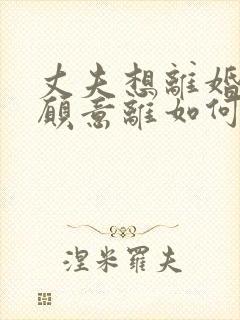 丈夫想離婚
願意離如何
涅米羅夫